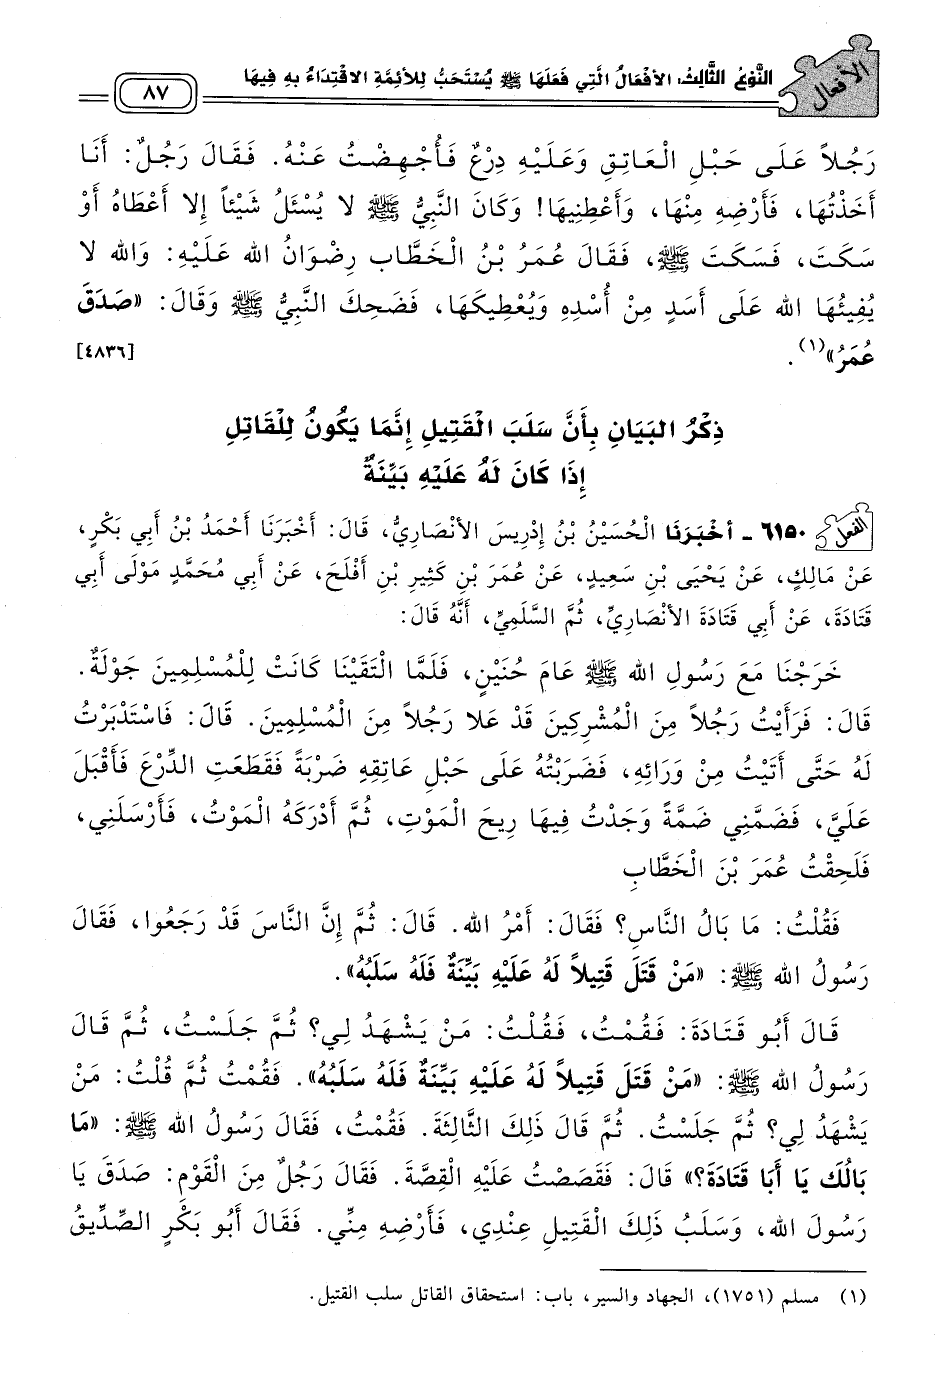 الأفعال
النَّوْعُ الثَّالِثُ: الأَفْعَالُ الَّتِي فَعَلَهَا ﷺ يُسْتَحَبُّ لِلأَئِمَّةِ الاقْتِدَاءُ بِهِ فِيهَا
٨٧
رَجُلاً عَلَى حَبْلِ الْعَاتِقِ وَعَلَيْهِ دِرْعٌ فَأُجْهِضْتُ عَنْهُ. فَقَالَ رَجُلٌ: أَنَا
أَخَذْتُهَا، فَأَرْضِهِ مِنْهَا، وَأَعْطِنِيهَا! وَكَانَ النَّبِيُّ ﷺ لا يُسْئَلُ شَيْئاً إلا أَعْطَاهُ أَوْ
سَكَتَ، فَسَكَتَ ﷺ، فَقَالَ عُمَرُ بْنُ الْخَطَّابِ رِضْوَانُ الله عَلَيْهِ: وَالله لا
يُفِيئُهَا الله عَلَى أَسَدٍ مِنْ أُسْدِهِ وَيُعْطِيكَهَا، فَضَحِكَ النَّبِيُّ ﷺ وَقَالَ: «صَدَقَ
عُمَرُ»(١). [٤٨٣٦]
ذِكْرُ البَيَانِ بِأَنَّ سَلَبَ الْقَتِيلِ إِنَّمَا يَكُونُ لِلْقَاتِلِ
إِذَا كَانَ لَهُ عَلَيْهِ بَيِّنَةٌ
الفعل ٦١٥٠ - أَخْبَرَنَا الْحُسَيْنُ بْنُ إِدْرِيسَ الأَنْصَارِيُّ، قَالَ: أَخْبَرَنَا أَحْمَدُ بْنُ أَبِي بَكْرٍ،
عَنْ مَالِكٍ، عَنْ يَحْيَى بْنِ سَعِيدٍ، عَنْ عُمَرَ بْنِ كَثِيرِ بْنِ أَفْلَحَ، عَنْ أَبِي مُحَمَّدٍ مَوْلَى أَبِي
قَتَادَةَ، عَنْ أَبِي قَتَادَةَ الأَنْصَارِيِّ، ثُمَّ السَّلَمِيِّ، أَنَّهُ قَالَ:
خَرَجْنَا مَعَ رَسُولِ الله ﷺ عَامَ حُنَيْنٍ، فَلَمَّا الْتَقَيْنَا كَانَتْ لِلْمُسْلِمِينَ جَوْلَةٌ.
قَالَ: فَرَأَيْتُ رَجُلاً مِنَ الْمُشْرِكِينَ قَدْ عَلا رَجُلاً مِنَ الْمُسْلِمِينَ. قَالَ: فَاسْتَدْبَرْتُ
لَهُ حَتَّى أَتَيْتُ مِنْ وَرَائِهِ، فَضَرَبْتُهُ عَلَى حَبْلِ عَاتِقِهِ ضَرْبَةً فَقَطَعَتِ الدِّرْعَ فَأَقْبَلَ
عَلَيَّ، فَضَمَّنِي ضَمَّةً وَجَدْتُ فِيهَا رِيحَ الْمَوْتِ، ثُمَّ أَدْرَكَهُ الْمَوْتُ، فَأَرْسَلَنِي،
فَلَحِقْتُ عُمَرَ بْنَ الْخَطَّابِ
فَقُلْتُ: مَا بَالُ النَّاسِ؟ فَقَالَ: أَمْرُ الله. قَالَ: ثُمَّ إِنَّ النَّاسَ قَدْ رَجَعُوا، فَقَالَ
رَسُولُ الله ﷺ: «مَنْ قَتَلَ قَتِيلاً لَهُ عَلَيْهِ بَيِّنَةٌ فَلَهُ سَلَبُهُ».
قَالَ أَبُو قَتَادَةَ: فَقُمْتُ، فَقُلْتُ: مَنْ يَشْهَدُ لِي؟ ثُمَّ جَلَسْتُ، ثُمَّ قَالَ
رَسُولُ الله ﷺ: «مَنْ قَتَلَ قَتِيلاً لَهُ عَلَيْهِ بَيِّنَةٌ فَلَهُ سَلَبُهُ». فَقُمْتُ ثُمَّ قُلْتُ: مَنْ
يَشْهَدُ لِي؟ ثُمَّ جَلَسْتُ. ثُمَّ قَالَ ذَلِكَ الثَّالِثَةَ. فَقُمْتُ، فَقَالَ رَسُولُ الله ﷺ: «مَا
بَالُكَ يَا أَبَا قَتَادَةَ؟» قَالَ: فَقَصَصْتُ عَلَيْهِ الْقِصَّةَ. فَقَالَ رَجُلٌ مِنَ الْقَوْمِ: صَدَقَ يَا
رَسُولَ الله، وَسَلَبُ ذَلِكَ الْقَتِيلِ عِنْدِي، فَأَرْضِهِ مِنِّي. فَقَالَ أَبُو بَكْرٍ الصِّدِّيقُ
(١) مسلم (١٧٥١)، الجهاد والسير، باب: استحقاق القاتل سلب القتيل.